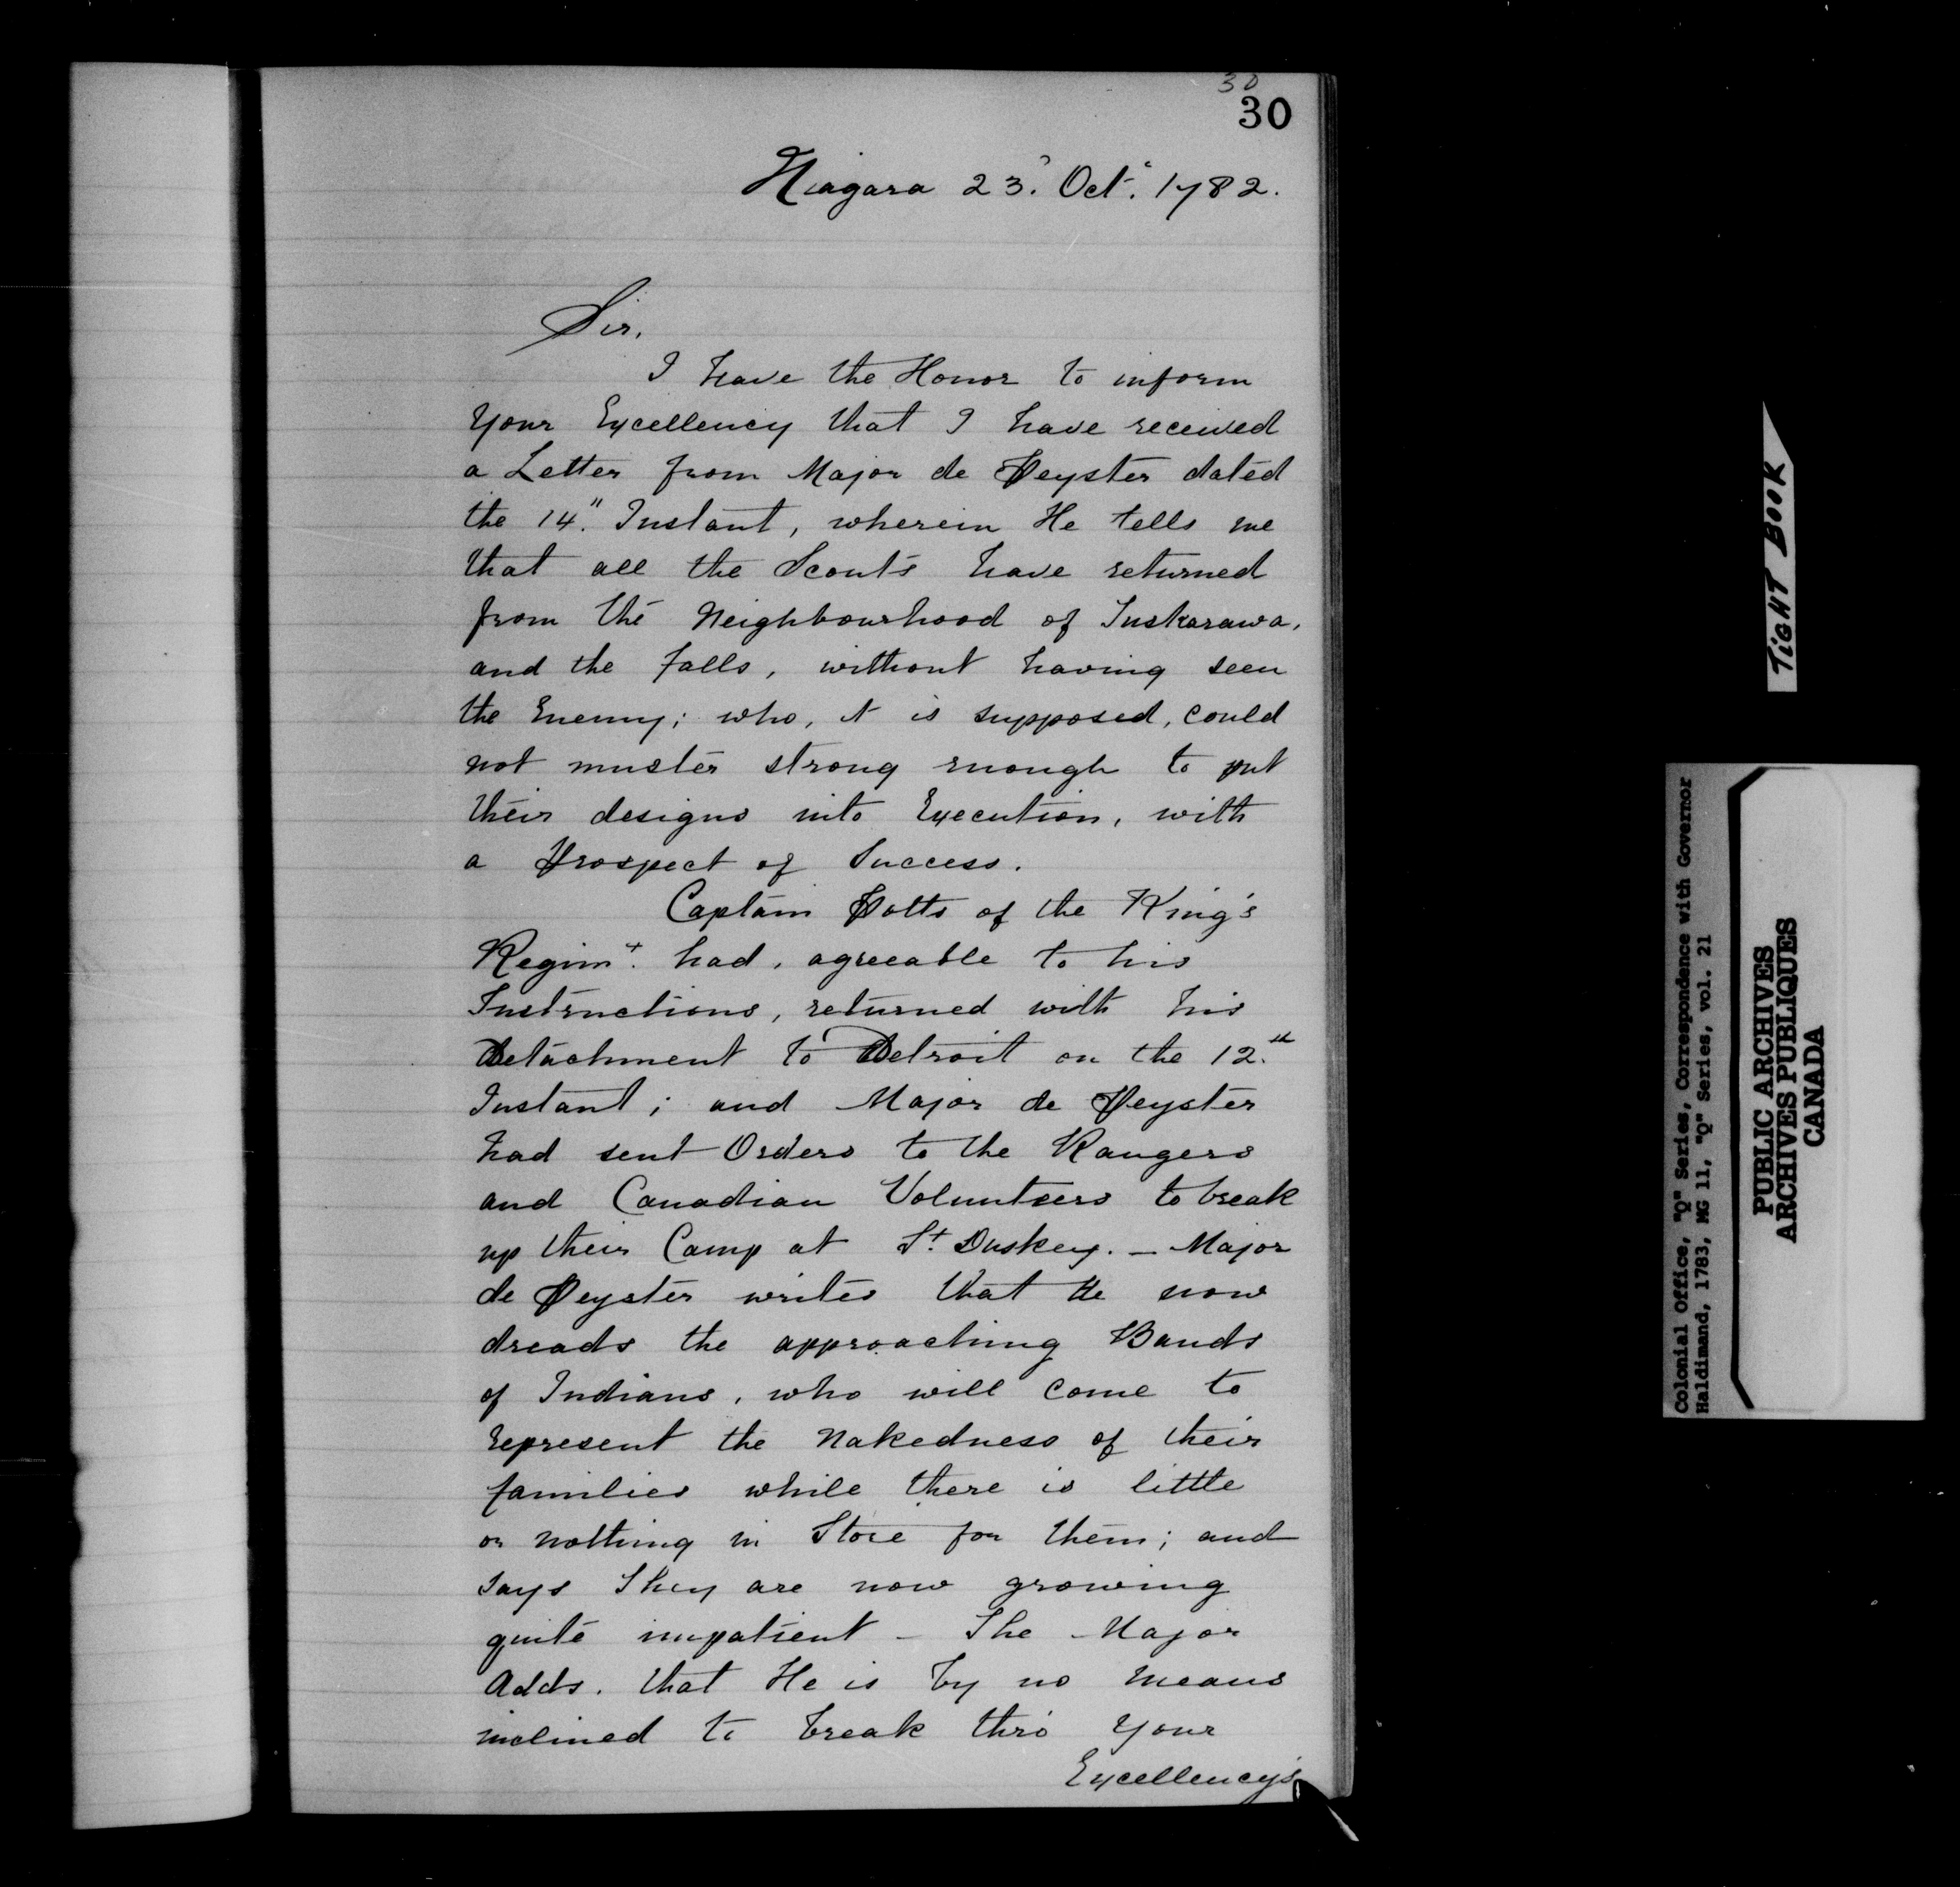 30
30
Niagara 23.d Oct.r 1782.
Sir,
I have the Honor to inform
Your Excellency that I have received
a Letter from Major de Peyster dated
the 14." Instant, wherein He tells me
that all the Scouts have returned
from the Neighbourhood of Tuskarawa,
and the falls, without having seen
the Enemy; who, it is supposed, could
not muster strong enough to put
their designs into Execution, with
a Prospect of Success.
Captain Potts of the King's
Regimt. had, agreeable to his
Instructions, returned with his
Detachment to Detroit on the 12.th
Instant; and Major de Peyster
had sent Orders to the Rangers
and Canadian Volunteers to break
up their Camp at St. Duskey. - Major
de Peyster writes that He now
dreads the approaching Bands
of Indians, who will come to
represent the Nakedness of their
families while there is little
or nothing in Store for them; and
says They are now growing
quite impatient - The Major
Adds, that He is by no means
inclined to break thro' Your
Excellency's
TIGHT BOOK
Colonial Office, "Q" Series, Correspondence with Governor
Haldimand, 1783, MG 11, "Q" Series, vol. 21
PUBLIC ARCHIVES
ARCHIVES PUBLIQUES
CANADA